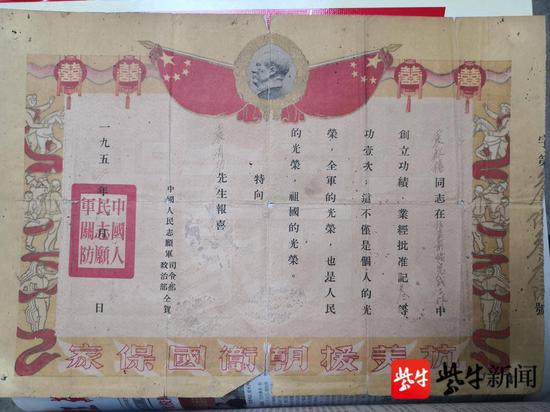 字第 號
同志在 中
創立功績,業經批准記 等
功壹次;這不僅是個人的光
榮,全軍的光榮,也是人民
的光榮,祖國的光榮。
特向
先生報喜
中國人民志願軍 司令部 政治部 仝賀
一九五 年 月 日
中國人民志願軍關防
抗美援朝衛國保家
紫牛 紫牛新闻